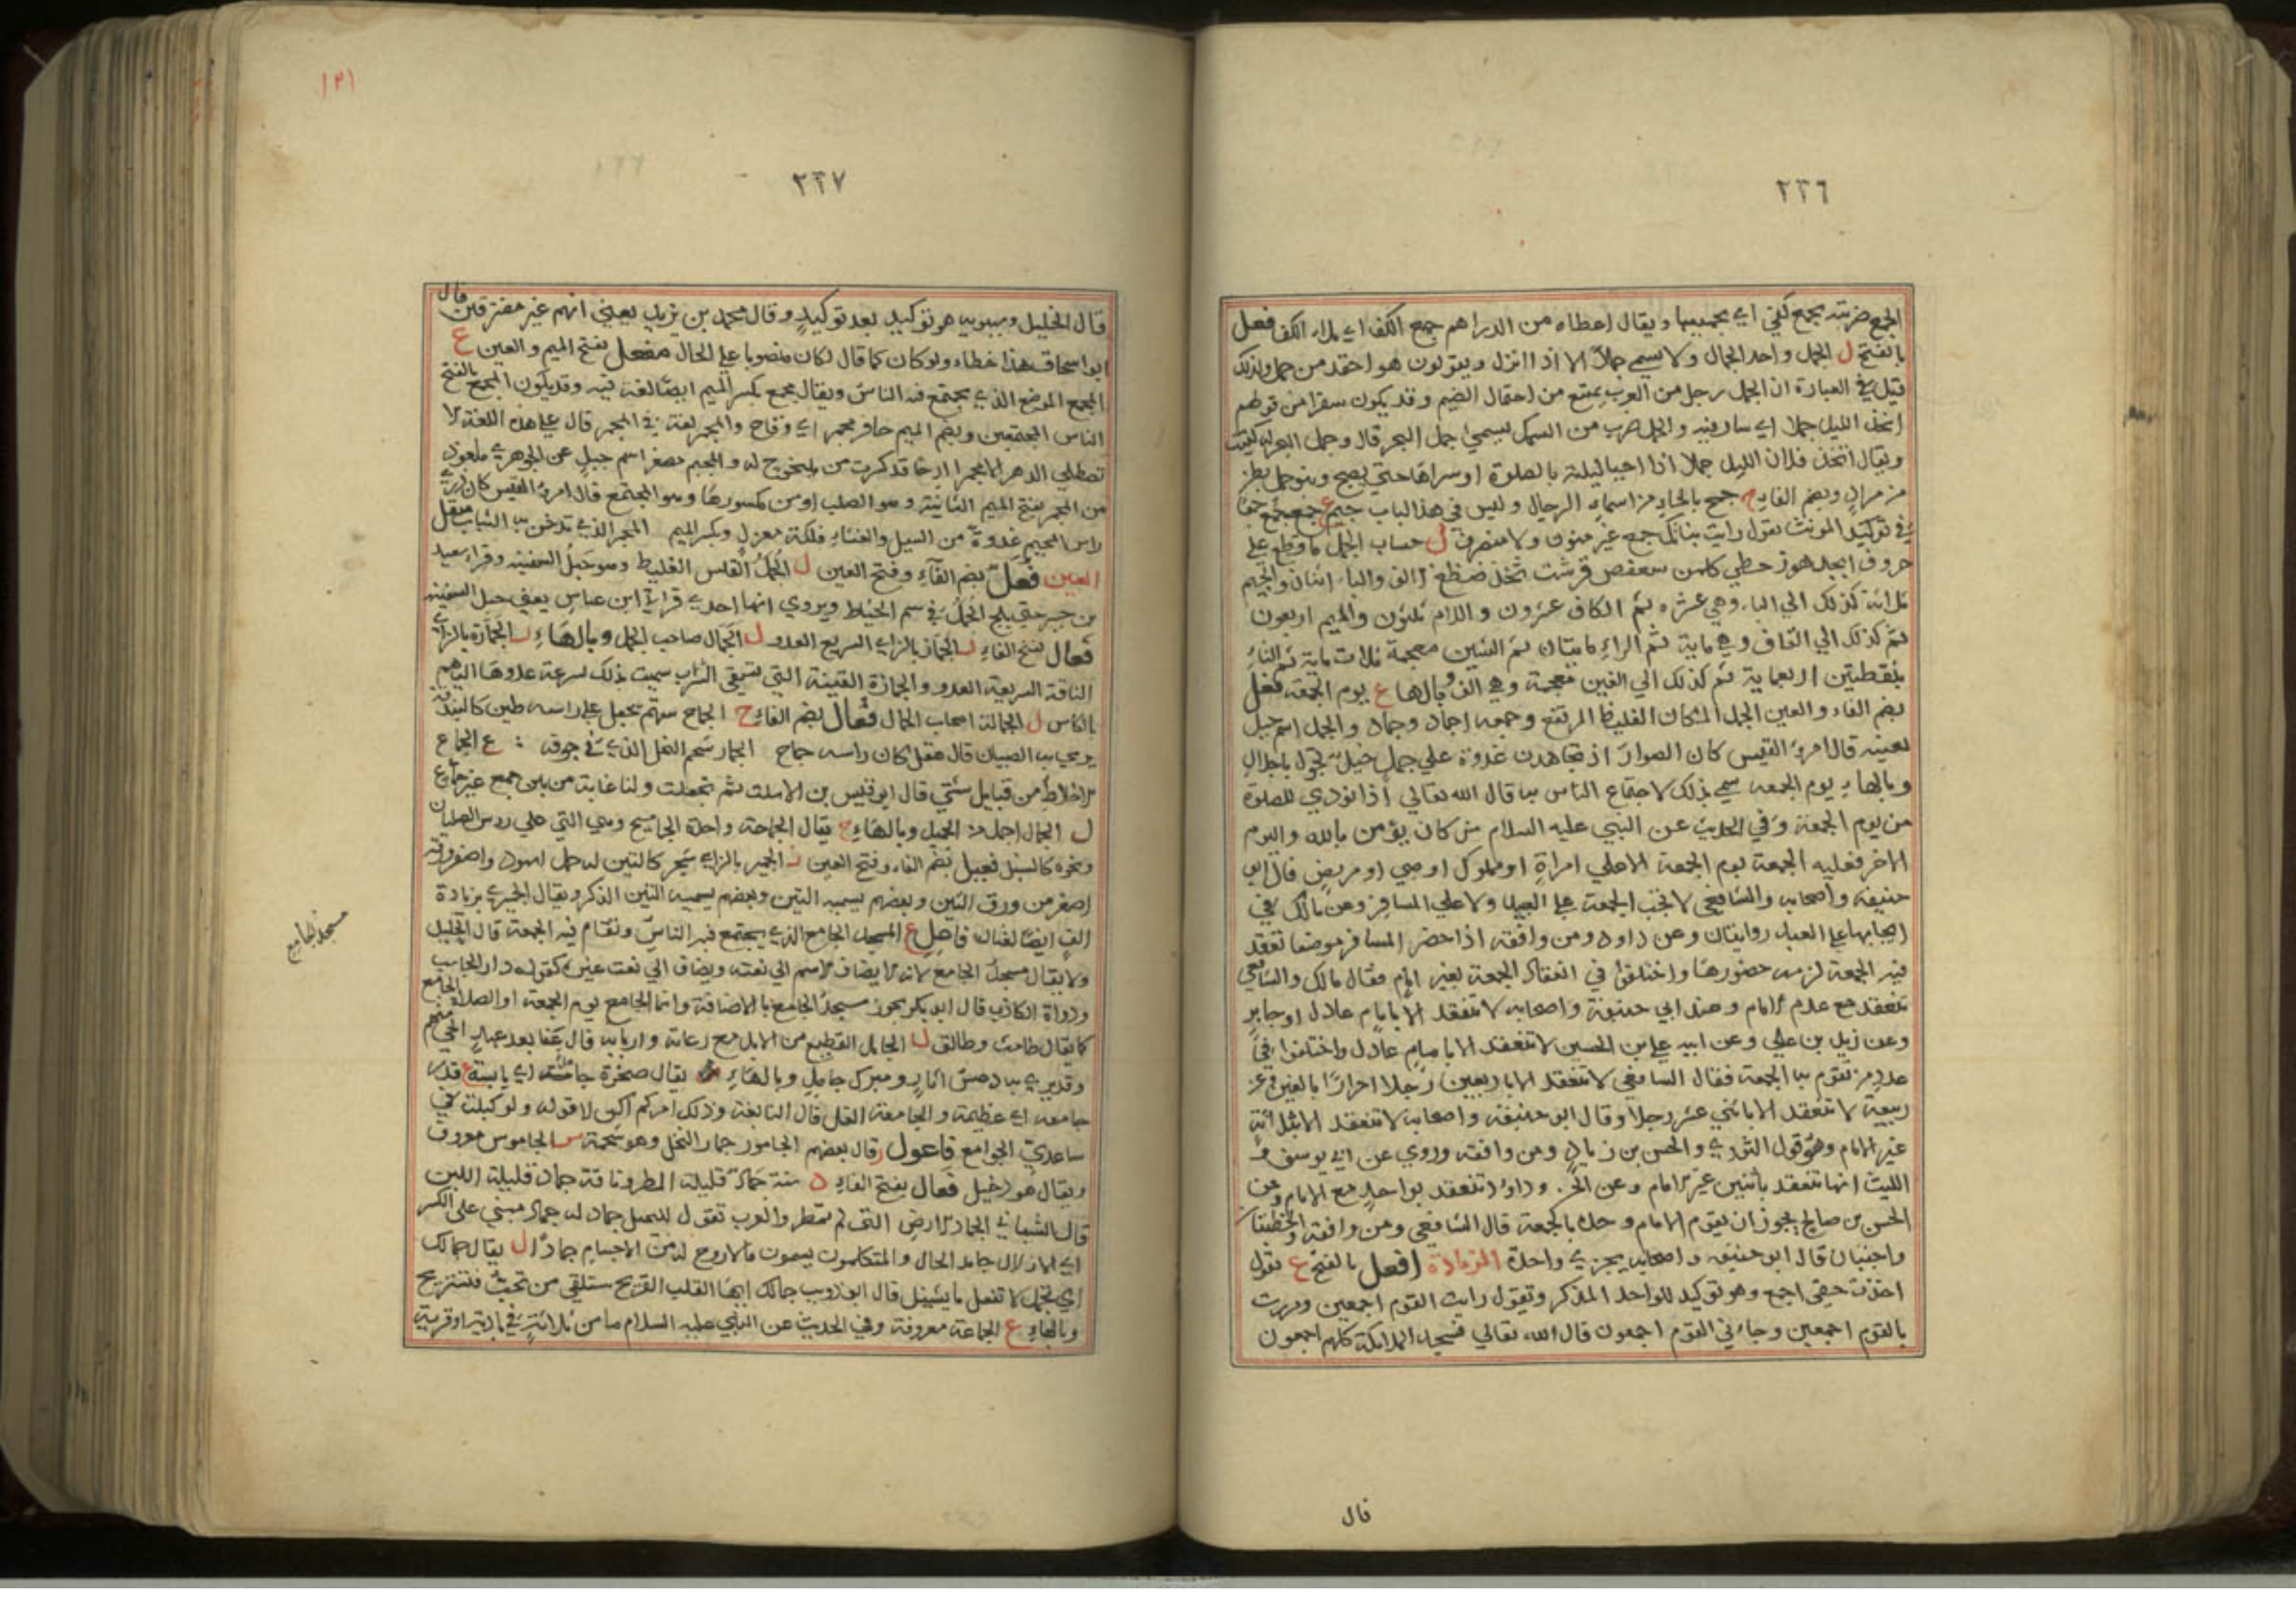 ٢٢٦
الجمع ضربته بجمع كفي اي بجميعها ويقال اعطاه من الدراهم جمع الكف اي ملاء الكف فعل
بالفتح ل الجمل واحد الجمال ولا يسمي جملاً الا اذا انزل ويقولون هو احقد من جمل ولذلك
قيل في العبارة ان الجمل رجل من العرب يمتنع من احتمال الضيم وقد يكون سفرا من قولهم
اتخذ الليل جملا اي سار فيه والجمل ضرب من السمك يسمي جمل البحر قال وجمل البحر له كتيت
ويقال اتخذ فلان الليل جملا اذا احيا ليلته بالصلوة او سراها حتي يصبح وبنو جمل بطن
من مراد وبضم الفاء ح جمح بالحاء من اسماء الرجال وليس في هذا الباب جيم ع جمع بجمع جمعا
في توكيد المونث تقول رايت بناتك جمع غير منون ولا منصرف ل حساب الجمل ما قطع علي
حروف ابجد هوز حطي كلمن سعفص قرشت ثخذ ضظغ الالف واحد والباء اثنان والجيم
ثلاثة كذلك الي الياء وهي عشرة ثم الكاف عشرون واللام ثلثون والميم اربعون
ثم كذلك الي القاف وهي ماية ثم الراء مايتان ثم الشين معجمة ثلاث ماية ثم التاء
بنقطتين اربعماية ثم كذلك الي الغين معجمة وهي الف وبالهاء ع يوم الجمعة فعل
بضم الفاء والعين الجمد المكان الغليظ المرتفع وجمعه اجماد وجماد والجمد اسم جبل
بعينه قال امرؤ القيس كان الصوار اذ تجاهدن غدوة علي جمد خيل تجول باجلال
وبالهاء ع يوم الجمعه سمي بذلك لاجتماع الناس بها قال الله تعالي اذا نودي للصلوة
من يوم الجمعة وفي الحديث عن النبي عليه السلام من كان يؤمن بالله واليوم
الاخر فعليه الجمعة يوم الجمعة الا علي امراة او مملوك او صبي او مريض قال ابو
حنيفة واصحابه والشافعي لا تجب الجمعة علي العبيد ولا علي المسافر وعن مالك في
ايجابها علي العبد روايتان وعن داود ومن وافقه اذا حضر المسافر موضعا تعقد
فيه الجمعة لزمه حضورها واختلفوا في انعقاد الجمعة بغير امام فقال مالك والشافعي
تنعقد مع عدم الامام وعند ابي حنيفة واصحابه لا تنعقد الا بامام عادل او جاير
وعن زيد بن علي وعن ابيه علي بن الحسين لا تنعقد الا بامام عادل واختلفوا في
عدد من تقوم به الجمعة فقال الشافعي لا تنعقد الا باربعين رجلا احرارا بالغين وعن
ربيعة لا تنعقد الا باثني عشر رجلا وقال ابو حنيفة واصحابه لا تنعقد الا بثلاثة
غير الامام وهو قول الثوري والحسن بن زياد ومن وافقه وروي عن ابي يوسف و
الليث انها تنعقد باثنين غير الامام وداود تنعقد بواحد مع الامام وعن
الحسن بن صالح يجوز ان يقوم الامام وحده بالجمعة قال الشافعي ومن وافقه والخطبتان
واجبتان قال ابو حنيفة واصحابه يجزي واحدة الزيادة افعل بالفتح ع تقول
اخذت حقي اجمع وهو توكيد للواحد المذكر وتقول رايت القوم اجمعين ومررت
بالقوم اجمعين وجاءني القوم اجمعون قال الله تعالي فسجد الملائكة كلهم اجمعون
قال
١٢١
٢٢٧
قال الخليل وسيبويه هو توكيد بعد توكيد وقال محمد بن يزيد يعني انهم غير مفترقين قال
ابو اسحاق هذا خطاء ولو كان كما قال لكان منصوبا علي الحال مفعل بفتح الميم والعين ع
المجمع الموضع الذي يجتمع فيه الناس ويقال مجمع بكسر الميم ايضا لغة فيه وقد يكون المجمع بالفتح
الناس المجتمعين وبضم الميم حافر مجمر اي وقاح والمجمر لغة في المجمر قال علي هذه اللغة لا
تصطلي الدهر الا مجمرا ارجا قد كسرت من يلنجوج له والمجيمر مصغر اسم جبل عن الجوهري ماخوذ
من المجمر بفتح الميم الثانية وهو الصلب او من مكسورها وهو المجتمع قال امرؤ القيس كان ذري
راس المجيمر غدوة من السيل والغثاء فلكة مغزل وبكسر الميم المجمر الذي تدخن به الثياب مثقل
العين فعل بضم الفاء وفتح العين ل الجمل القلس الغليظ وهو حبل السفينة وقراء سعيد
بن جبير حتي يلج الجمل في سم الخياط ويروي انها احدي قراءة ابن عباس يعني حبل السفينة
فعال بفتح الفاء ز الجماز بالزاي السريع العدو ل الجمال صاحب الجمل وبالهاء ز الجمازة بالزاي
الناقة السريعة العدو والجمازة القينة التي تسقي الشراب سميت بذلك لسرعة عدوها اليهم
بالكاس ل الجمالة اصحاب الجمال فعال بضم الفاء ح الجماح سهم يجعل علي راسه طين كالبندقة
يرمي به الصبيان قال مثقل كان راسه جماح الجمار شحم النخل الذي في جوفه : ع الجماع
الاخلاط من قبايل شتي قال ابو قيس بن الاسلت ثم تجملت ولنا غاية من بين جمع غير جماع
ل الجمال اجمل من الجميل وبالهاء ح يقال الجماحة واحدة الجماميح وهي التي علي روس الصليان
ونحوه كالسنبل فعيل بضم الفاء وفتح العين ز الجميز بالزاي شجر كالتين له حمل اسود واصفر ورقه
اصغر من ورق التين وبعضهم يسميه التين وبعضهم يسميه التين الذكر ويقال الجميزي بزيادة
الف ايضا لغتان فاعل ع المسجد الجامع الذي يجتمع فيه الناس وتقام فيه الجمعة قال الخليل
ولا يقال مسجد الجامع لانه لا يضاف الاسم الي نعته ويضاف الي نعت غيره كقوله دار الجانب
ودواة الكاتب قال ابو بكر يجوز مسجد الجامع بالاضافة وانما الجامع يوم الجمعة او الصلاة الجامع
كما يقال طامث وطالق ل الجامل القطيع من الابل مع رعاته واربابه قال عفا بعد عهد الحي منهم
وقد يري به دعس اثار ومبرك جامل وبالهاء يقال صخرة جامسة اي يابسة ع قدر
جامعة اي عظيمة والجامعة الغل قال النابغة وذلك امر لم اكن لاقوله ولو كبلت في
ساعدي الجوامع فاعول ر قال بعضهم الجامور جمار النخل وهو شحمه س الجاموس معروف
ويقال هو دخيل فعال بفتح الفاء د سنة جماد قليلة المطر وناقة جماد قليلة اللبن
قال الشيباني الجماد الارض التي لم تمطر والعرب تقول للبخيل جماد له جماد مبني علي الكسر
اي لا زال جامد الحال والمتكلمون يسمون ما لا روح له من الاجسام جمادا ل يقال جمالك
اي تجمل لا تفعل ما يشينك قال ابو ذويب جمالك ايها القلب القريح ستلقي من تحب فتستريح
وبالهاء ع الجماعة معروفة وفي الحديث عن النبي عليه السلام ما من ثلاثة في بادية او قرية
مسجد الجامع